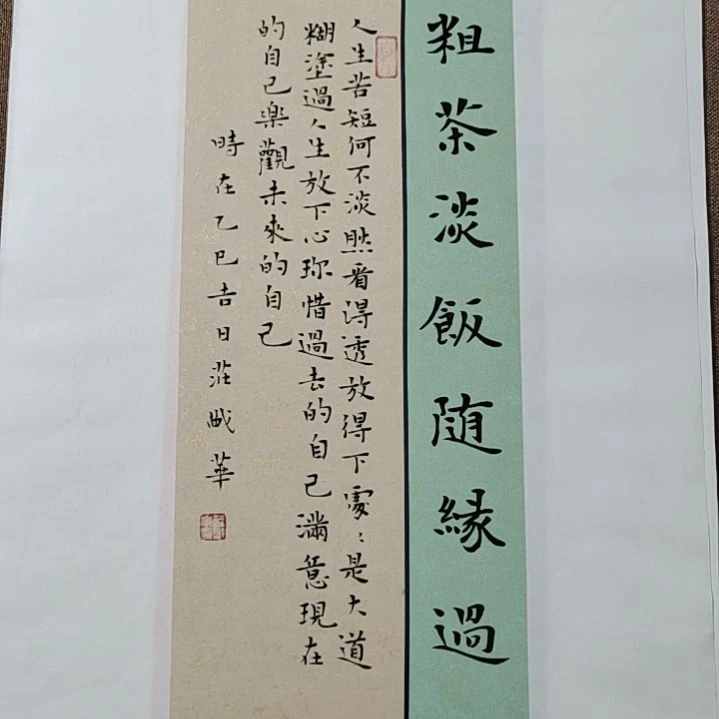 粗茶淡飯随緣過
人生苦短何不淡然看得透放得下處〻是大道
糊塗過人生放下心珎惜過去的自己滿意現在
的自己樂觀未來的自己
時在乙巳吉日莊華